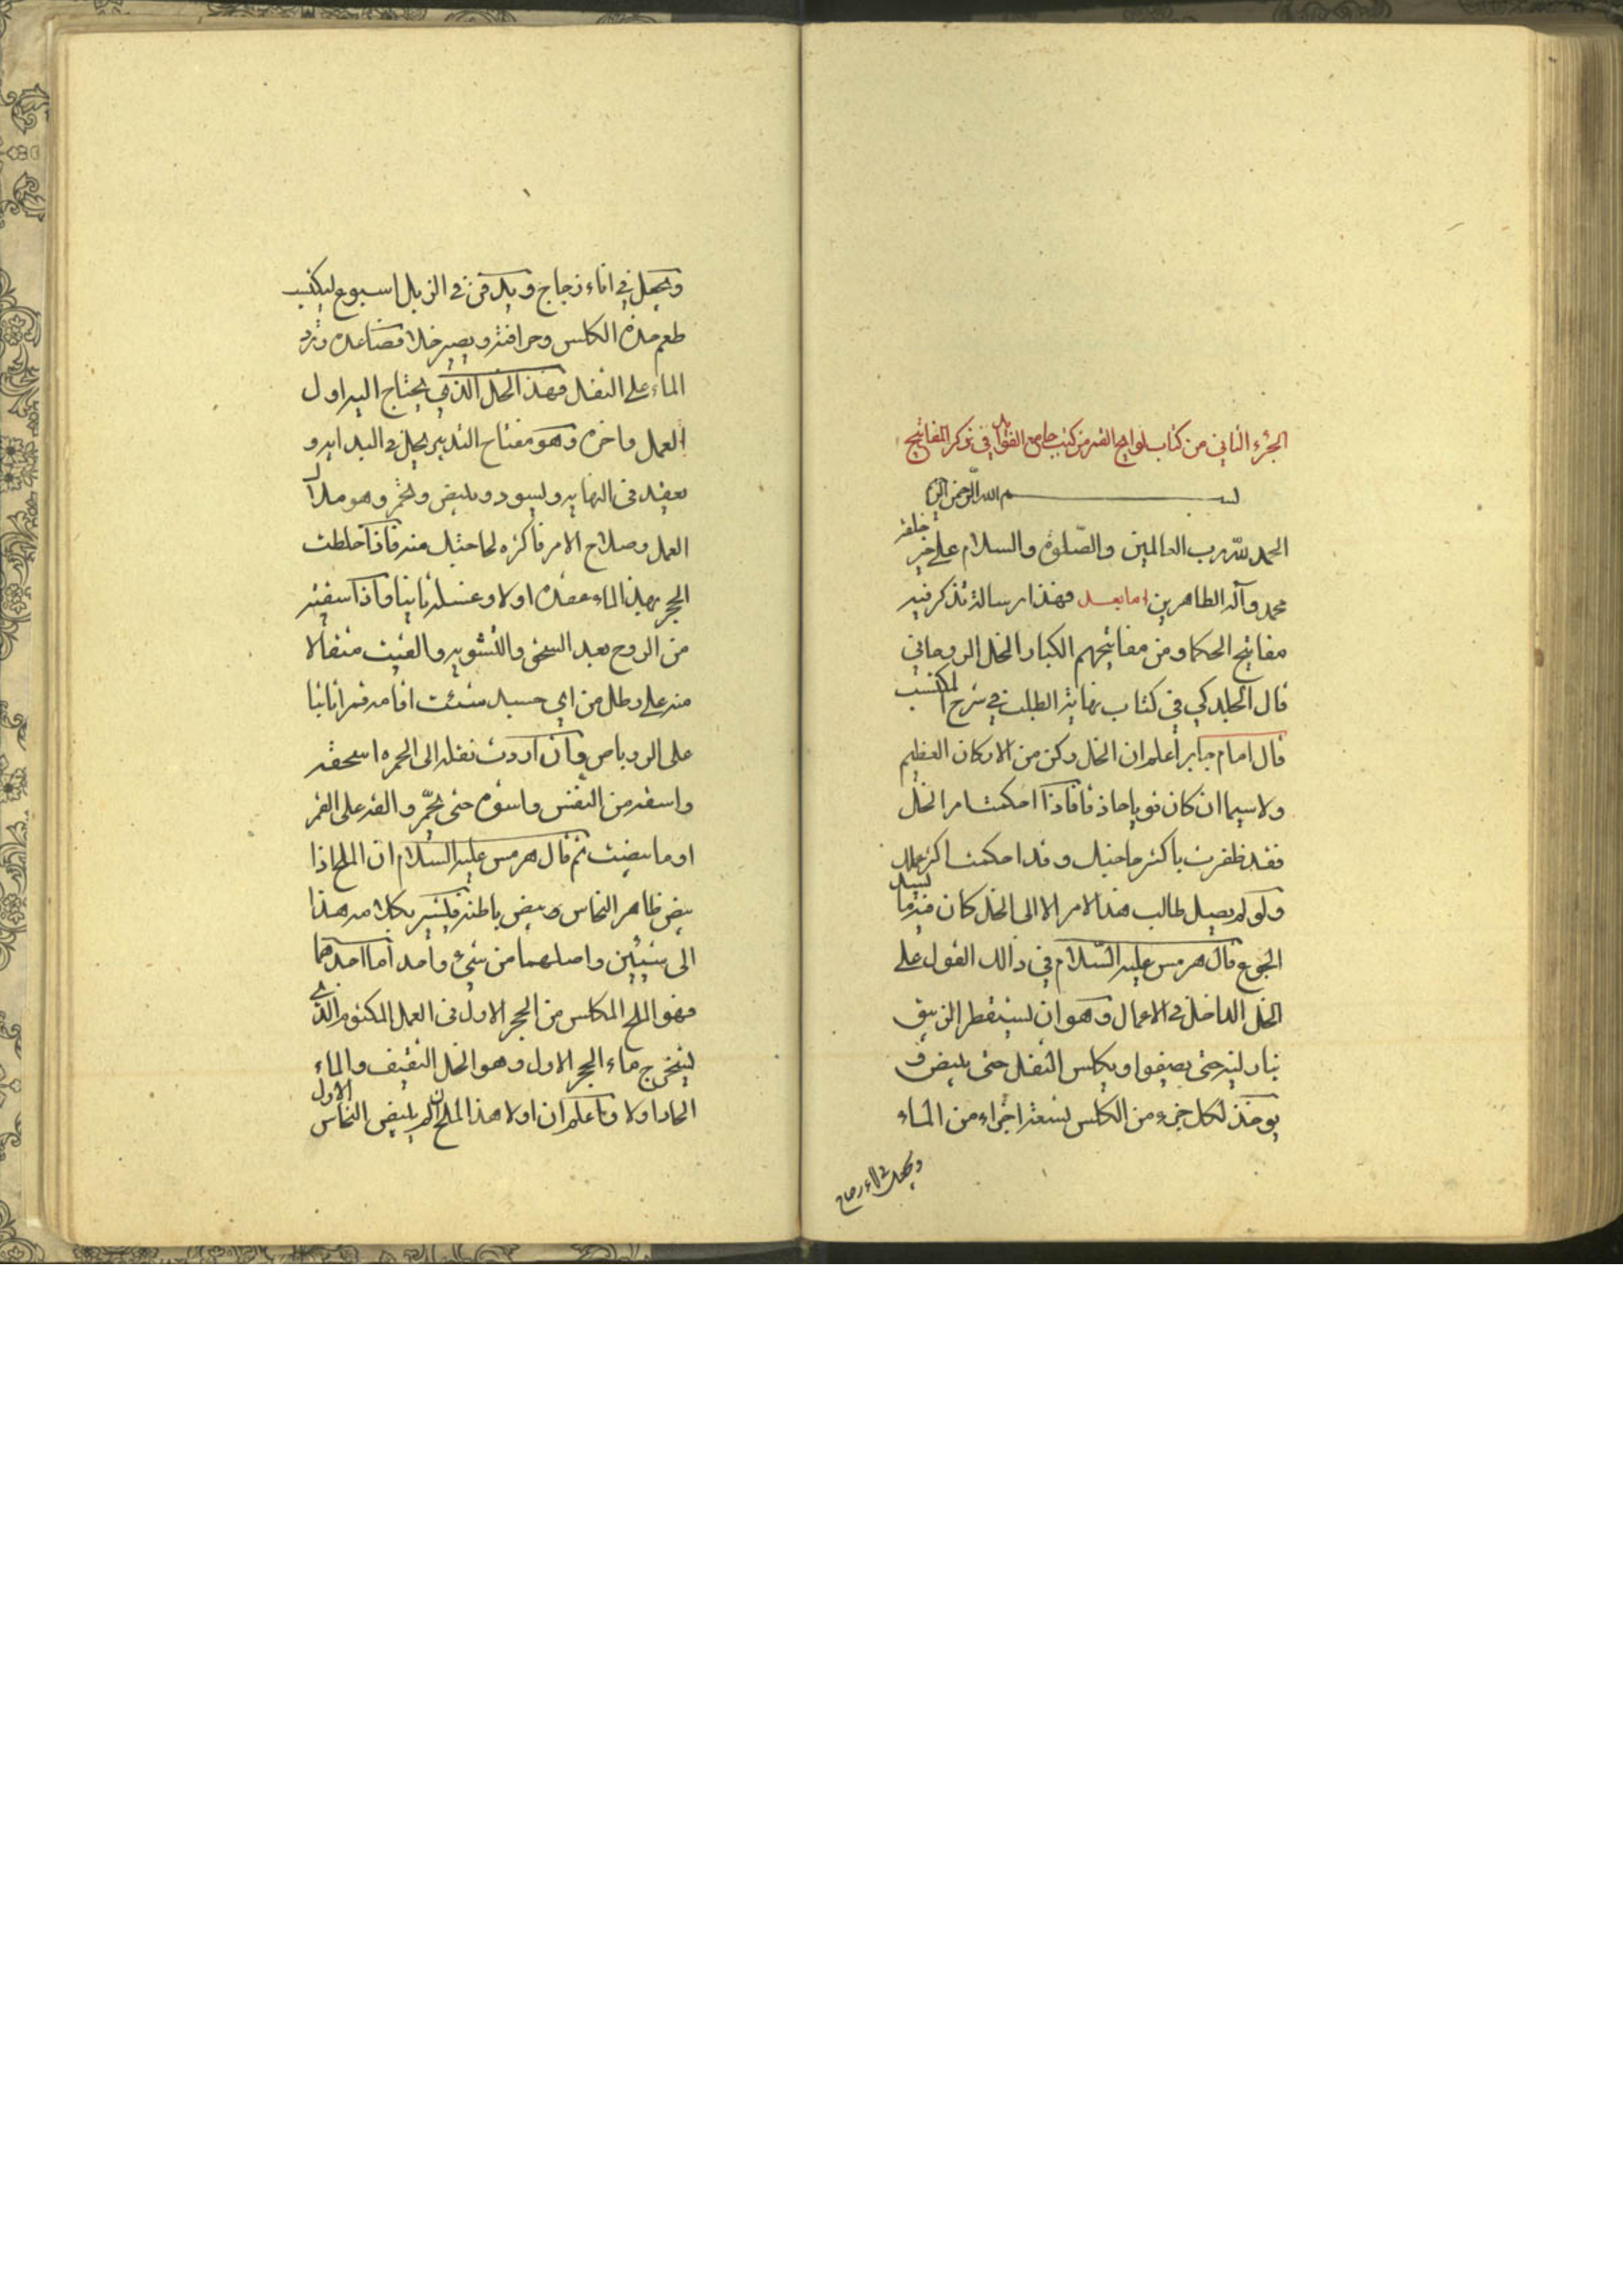 الجزء الثاني من كتاب لوايح القمر من كتب جامع الفوائد في ذكر المفاتيح
بسم الله الرحمن الرحيم
الحمد لله رب العالمين والصلوة والسلام على خير خلقه
محمد وآله الطاهرين اما بعد فهذا رسالة نذكر فيه
مفاتيح الحكما ومن مفاتيحهم الكبار الخل الروحاني
قال الجلدكي في كتاب نهاية الطلب في شرح المكتسب
قال امام جابر اعلم ان الخل ركن من الاركان العظيم
ولا سيما ان كان قويا حاذقا فاذا احكمت امر الخل
فقد ظفرت باكثر ما حنيل وقد احكمت اكثر عملك
ولو لم يصل طالب هذا الامر الا الى الخل كان فيه ما يسد
الجوع قال هرمس عليه السلام في ذالك القول على
الخل الداخل في الاعمال وهو ان يستقطر الزيبق
بنار لينه حتى يصفوا ويكلس الثفل حتى يبيض و
يوخذ لكل جزء من الكلس تسعة اجزاء من الماء
ويجعل في اناء زجاج
ويجعل في اناء زجاج ويدفن في الزبل اسبوع ليكتسب
طعم حدة الكلس وحرافته ويصير خلا فصاعده وترد
الماء على الثفل فهذ الخل الذي يحتاج اليه اول
العمل واخره وهو مفتاح التدبير يحل في البدايه و
يعقد في النهايه ويسود ويبيض ويحمر وهو ملاك
العمل وصلاح الامر فاكثره لحاجتك منه فاذا خلطت
الحجر بهذ الماء عقده اولا وغسله ثانيا فاذا سقيته
من الروح بعد السحق والتشويه والقيت مثقالا
منه على رطل من اي جسد شئت اقامه قمرا ثانيا
على الروباص وان اردت نقله الى الحمره اسحقه
واسقه من النفس واشوه حتى يحمر والقه على القمر
او ما بيضت ثم قال هرمس عليه السلام ان الملح اذا
بيض ظاهر النحاس وبيض باطنه فيشير بكلامه هذا
الى شيئين واصلهما من شيء واحد اما احدهما
فهو الملح المكلس من الحجر الاول في العمل المكتوم الذي
يستخرج ماء الحجر الاول وهو الخل الثقيف والماء
الحاد اولا واعلم ان اولا هذ الملح ان لم يبيض النحاس الاول